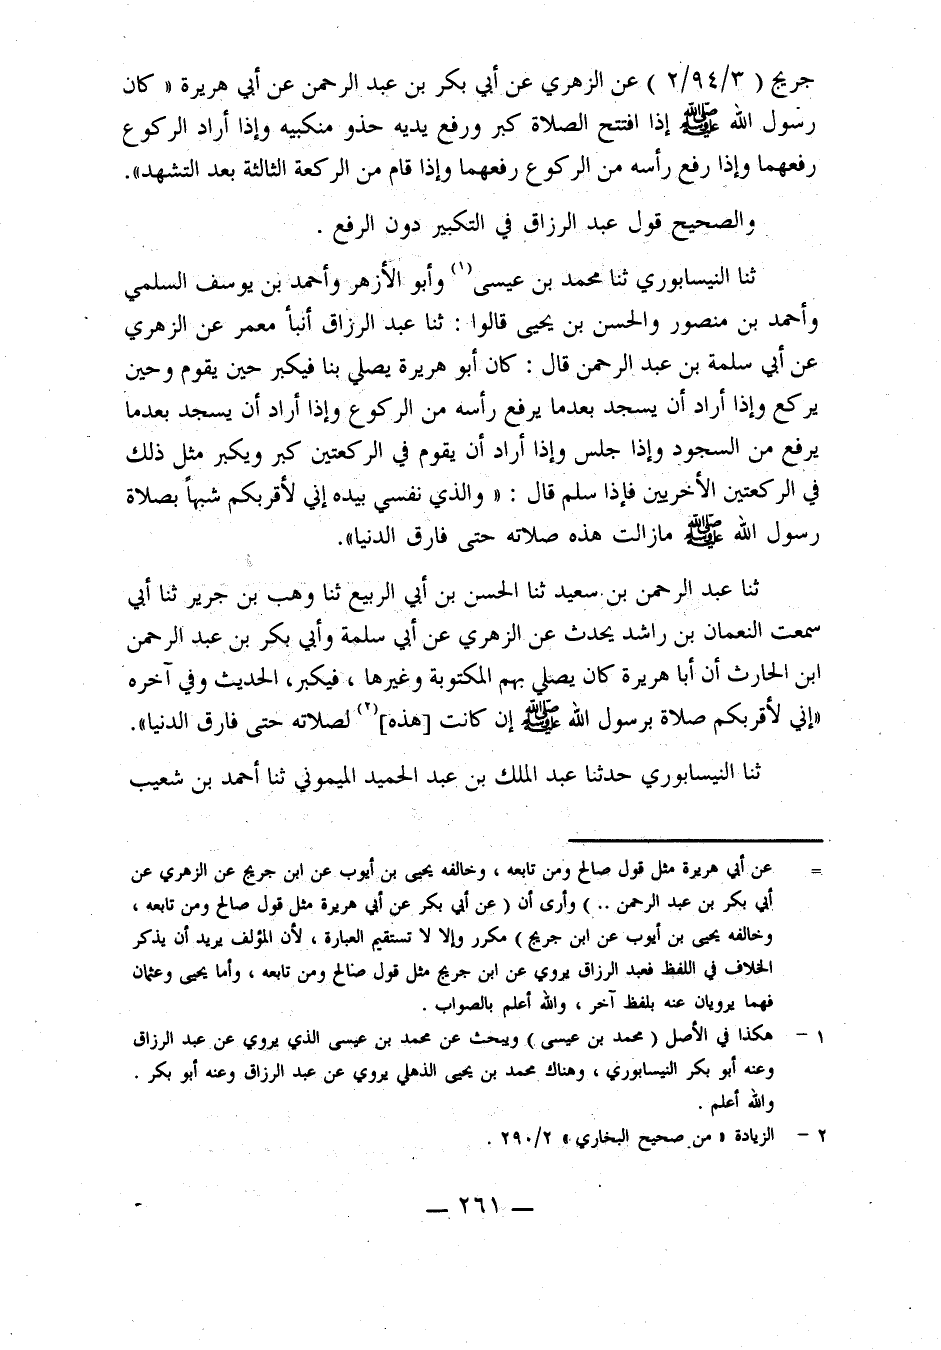 جريج ( ٢/٩٤/٣ ) عن الزهري عن أبي بكر بن عبد الرحمن عن أبي هريرة « كان
رسول الله ﷺ إذا افتتح الصلاة كبر ورفع يديه حذو منكبيه وإذا أراد الركوع
رفعهما وإذا رفع رأسه من الركوع رفعهما وإذا قام من الركعة الثالثة بعد التشهد».
والصحيح قول عبد الرزاق في التكبير دون الرفع .
ثنا النيسابوري ثنا محمد بن عيسى(١) وأبو الأزهر وأحمد بن يوسف السلمي
وأحمد بن منصور والحسن بن يحيى قالوا : ثنا عبد الرزاق أنبأ معمر عن الزهري
عن أبي سلمة بن عبد الرحمن قال : كان أبو هريرة يصلي بنا فيكبر حين يقوم وحين
يركع وإذا أراد أن يسجد بعدما يرفع رأسه من الركوع وإذا أراد أن يسجد بعدما
يرفع من السجود وإذا جلس وإذا أراد أن يقوم في الركعتين كبر ويكبر مثل ذلك
في الركعتين الأخريين فإذا سلم قال : « والذي نفسي بيده إني لأقربكم شبهاً بصلاة
رسول الله ﷺ مازالت هذه صلاته حتى فارق الدنيا».
ثنا عبد الرحمن بن سعيد ثنا الحسن بن أبي الربيع ثنا وهب بن جرير ثنا أبي
سمعت النعمان بن راشد يحدث عن الزهري عن أبي سلمة وأبي بكر بن عبد الرحمن
ابن الحارث أن أبا هريرة كان يصلي بهم المكتوبة وغيرها ، فيكبر، الحديث وفي آخره
«إني لأقربكم صلاة برسول الله ﷺ إن كانت [هذه](٢) لصلاته حتى فارق الدنيا».
ثنا النيسابوري حدثنا عبد الملك بن عبد الحميد الميموني ثنا أحمد بن شعيب
= عن أبي هريرة مثل قول صالح ومن تابعه ، وخالفه يحيى بن أيوب عن ابن جريج عن الزهري عن
أبي بكر بن عبد الرحمن .. ) وأرى أن ( عن أبي بكر عن أبي هريرة مثل قول صالح ومن تابعه ،
وخالفه يحيى بن أيوب عن ابن جريج ) مكرر وإلا لا تستقيم العبارة ، لأن المؤلف يريد أن يذكر
الخلاف في اللفظ فعبد الرزاق يروي عن ابن جريج مثل قول صالح ومن تابعه ، وأما يحيى وعثمان
فهما يرويان عنه بلفظ آخر ، والله أعلم بالصواب .
١ – هكذا في الأصل ( محمد بن عيسى ) ويبحث عن محمد بن عيسى الذي يروي عن عبد الرزاق
وعنه أبو بكر النيسابوري ، وهناك محمد بن يحيى الذهلي يروي عن عبد الرزاق وعنه أبو بكر .
والله أعلم .
٢ – الزيادة « من صحيح البخاري » ٢٩٠/٢ .
— ٢٦١ —